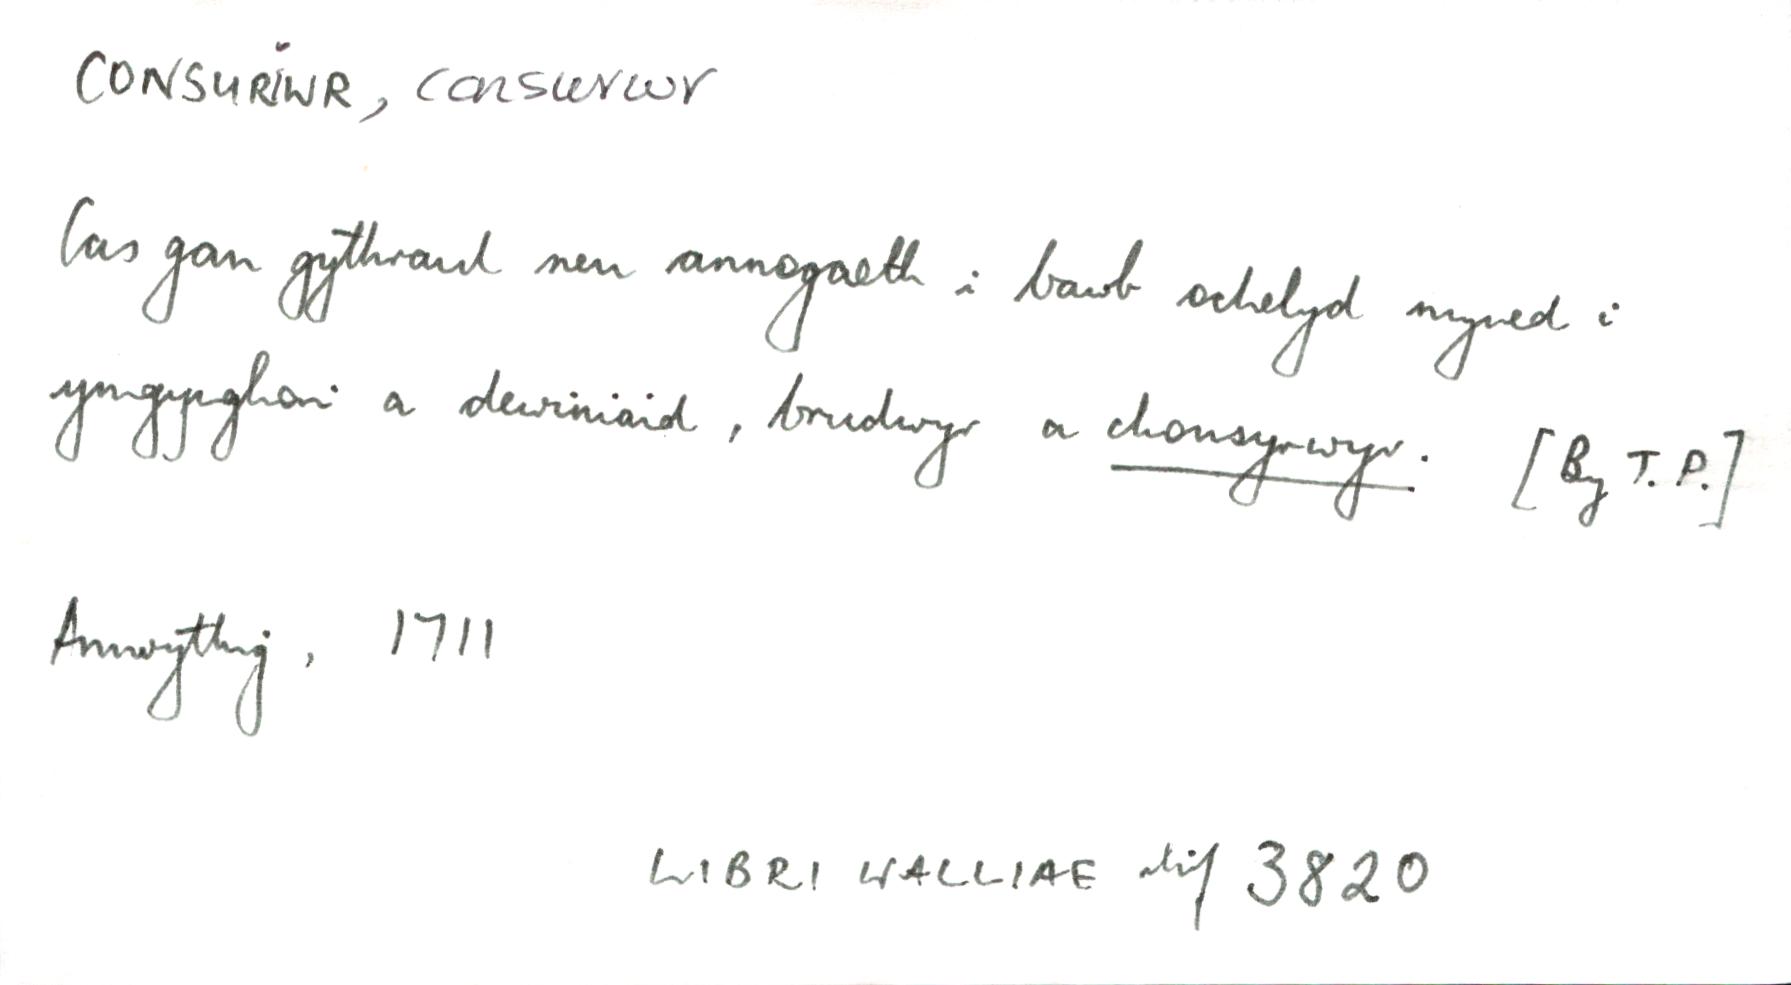 CONSURÏWR, consurwr
Cas gan gythraul neu annogaeth i bawb ochelyd myned i
ymgynghori a dewiniaid, brudwyr a chonsyrwyr. [By T. P.]
Amwythig, 1711
LIBRI WALLIAE rhif 3820